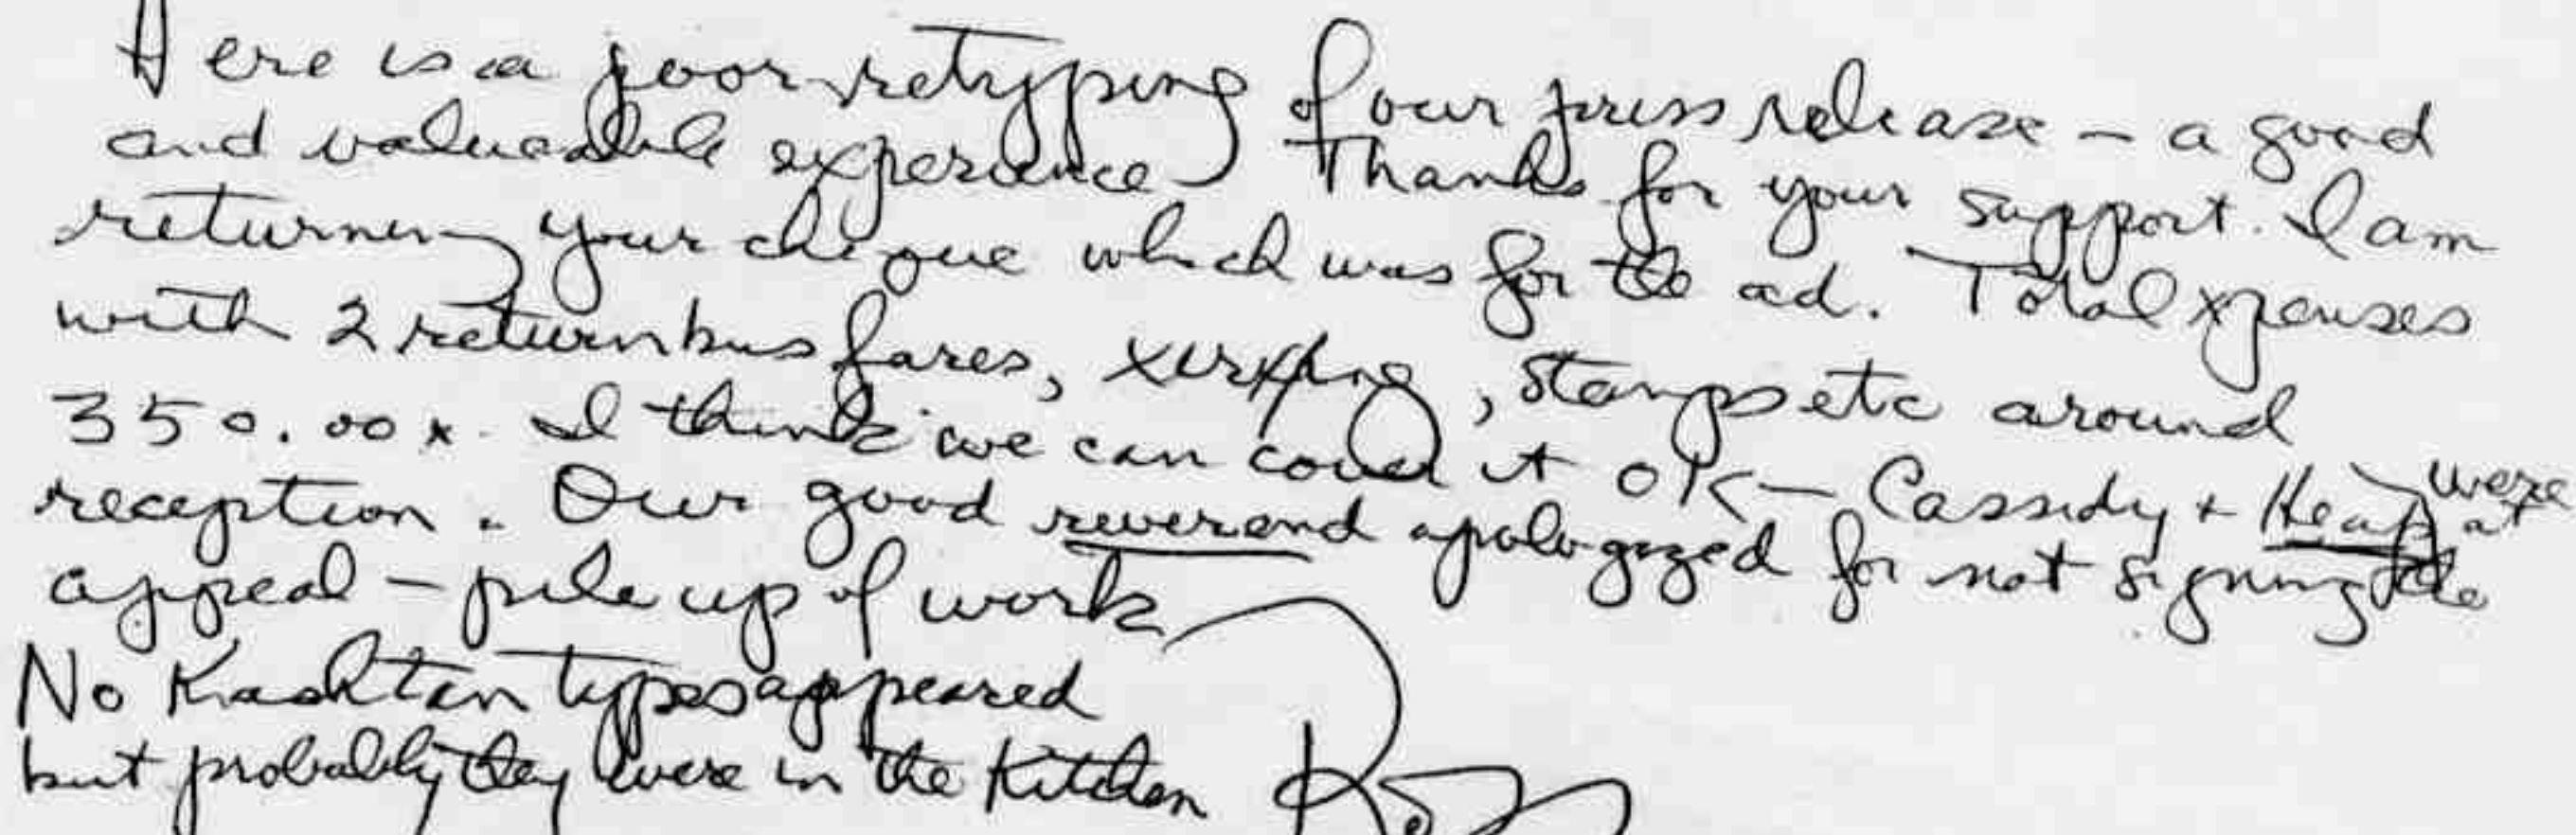 Here is a poor retyping of our press release – a good
and valuable experience Thanks for your support. I am
returning your cheque which was for the ad. Total xpenses
with 2 return bus fares, xerxing, stamps etc around
350.00x. I think we can cover it OK – Cassidy + Heap were at
reception. Our good reverend apologized for not signing the
appeal – pile up of work
No Kashtan types appeared
but probably they were in the Kitchen